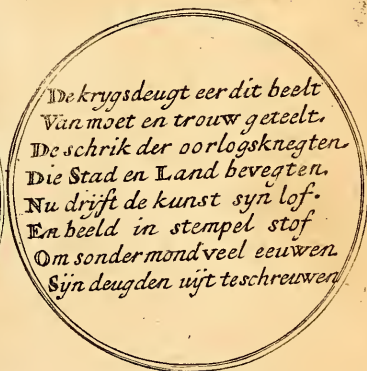 De krygsdeugt eer dit beelt
Van moet en trouw geteelt.
De schrik der oorlogsknegten.
Die Stad en Land bevegten.
Nu drijft de kunst syn lof.
En beeld in stempel stof
Om sonder mond veel eeuwen.
Sijn deugden uijt te schreuwen